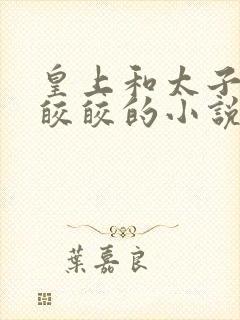 皇上和太子
皎皎的小説
葉嘉良